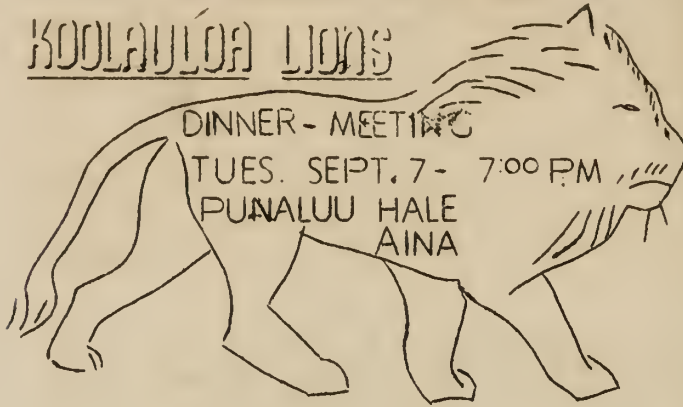 KOOLAULOA LIONS
DINNER - MEETING
TUES. SEPT. 7 - 7:00 P.M
PUNALUU HALE
AINA